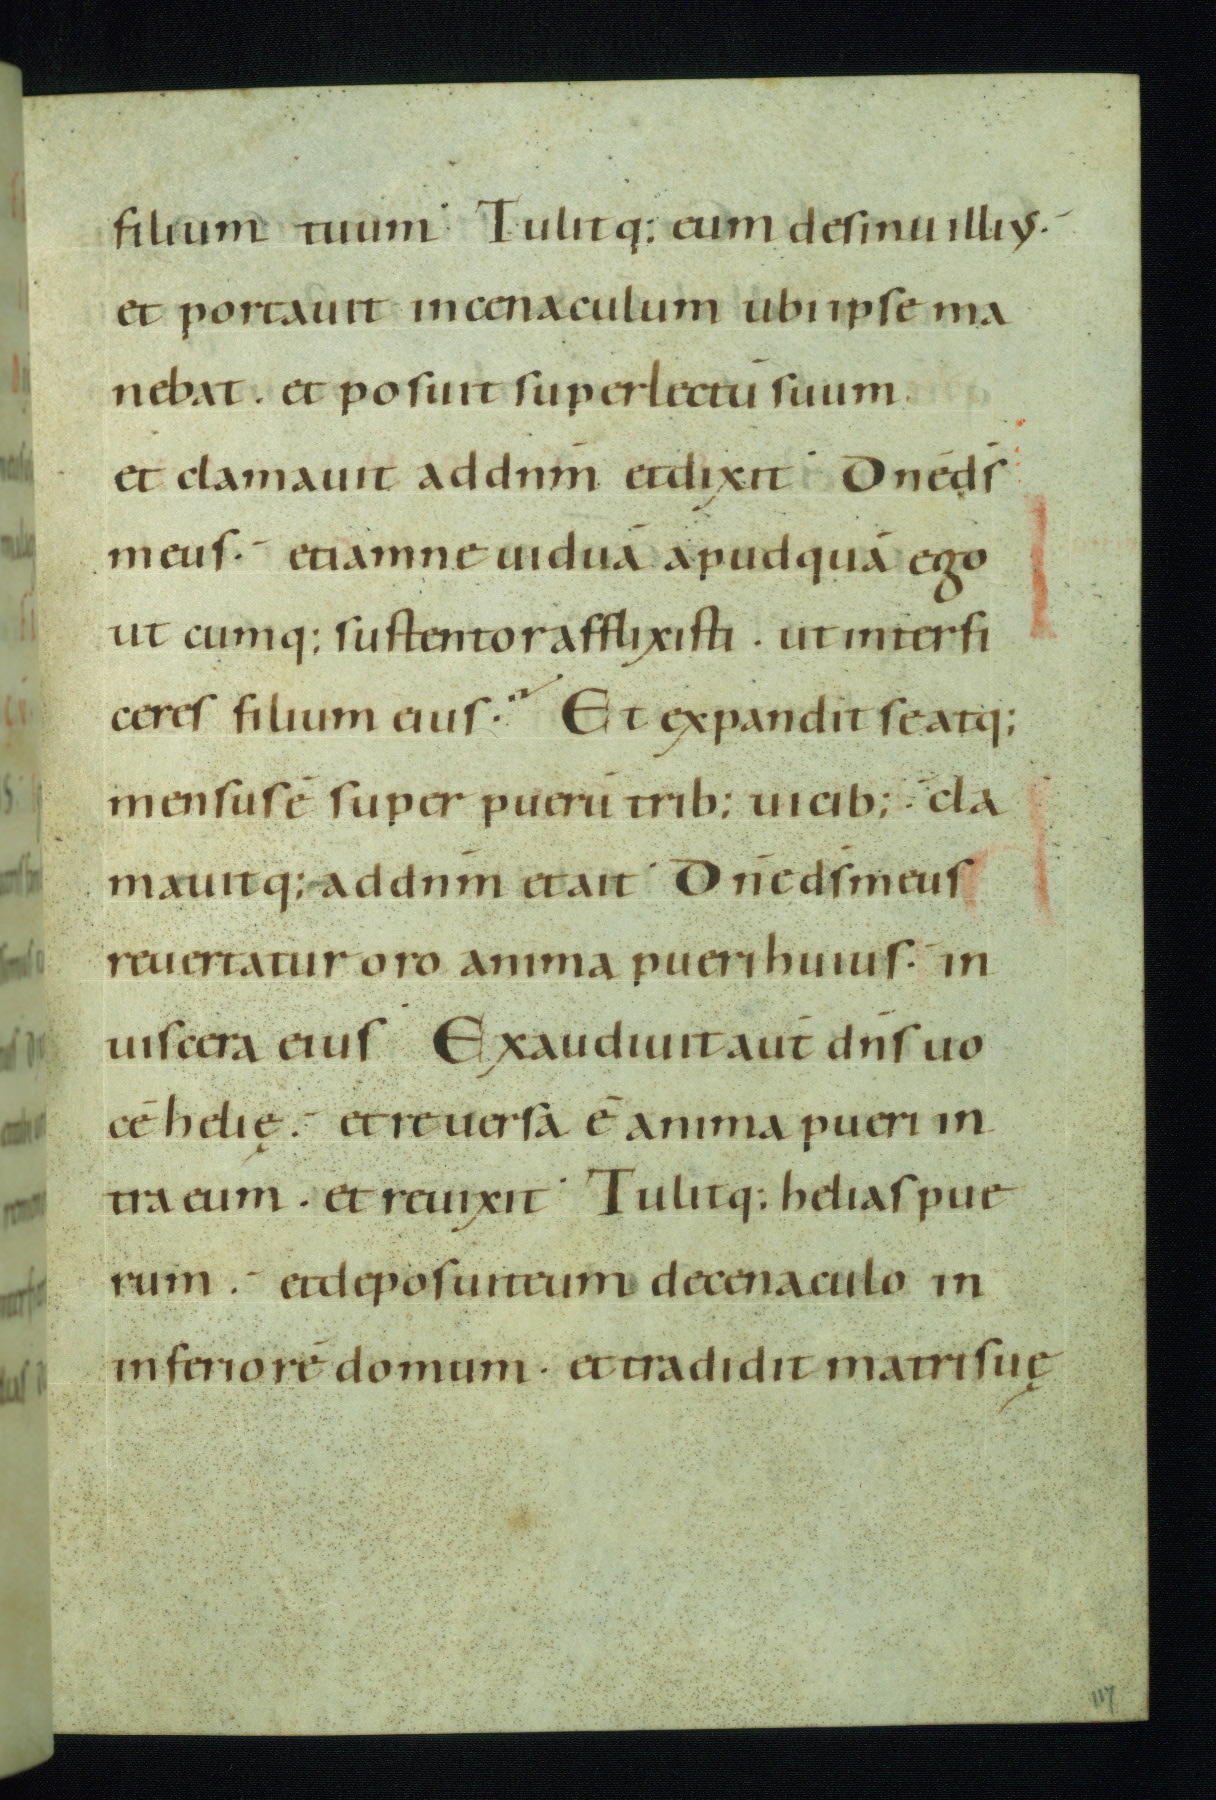 filium tuum· Tulitq; eum desinu illiy·
et portauit incenaculum ubi ipse ma
nebat. et posuit superlectū suum.
et clamauit addn̄m etdixit· Dn̄e ds̄
meus· etiamne uiduā apudquā ego
ut cumq; sustentor afflixisti. ut interfi
ceres filium eius· Et expandit se atq;
mensus ē super puerū trib; uicib; cla
mauitq; addn̄m etait· Dn̄e ds̄ meus
reuertatur oro anima puerihuius· in
uiscera eius· Exaudiuit aut̄ dn̄s uo
cē helię. et reuersa ē anima pueri in
tra eum. et reuixit· Tulitq; heliaspue
rum. etdeposuiteum decenaculo in
inferiorē domum. et tradidit matri suę
117